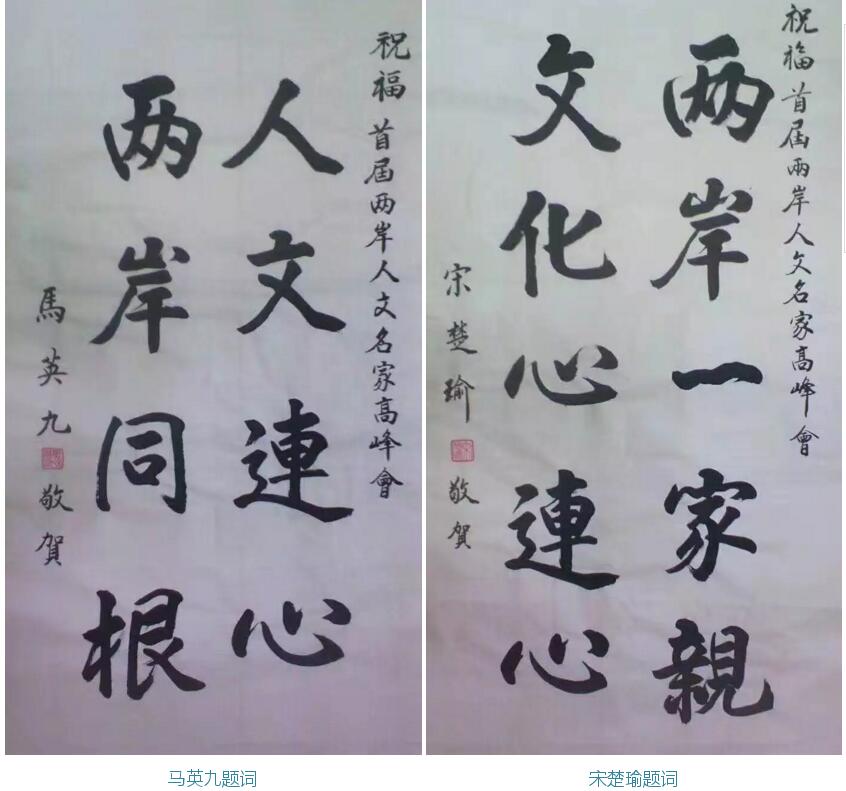 祝福 首屆两岸人文名家高峰會
人文連心
两岸同根
馬英九 敬賀
祝福 首屆兩岸人文名家高峰會
两岸一家親
文化心連心
宋楚瑜 敬賀
马英九题词
宋楚瑜题词